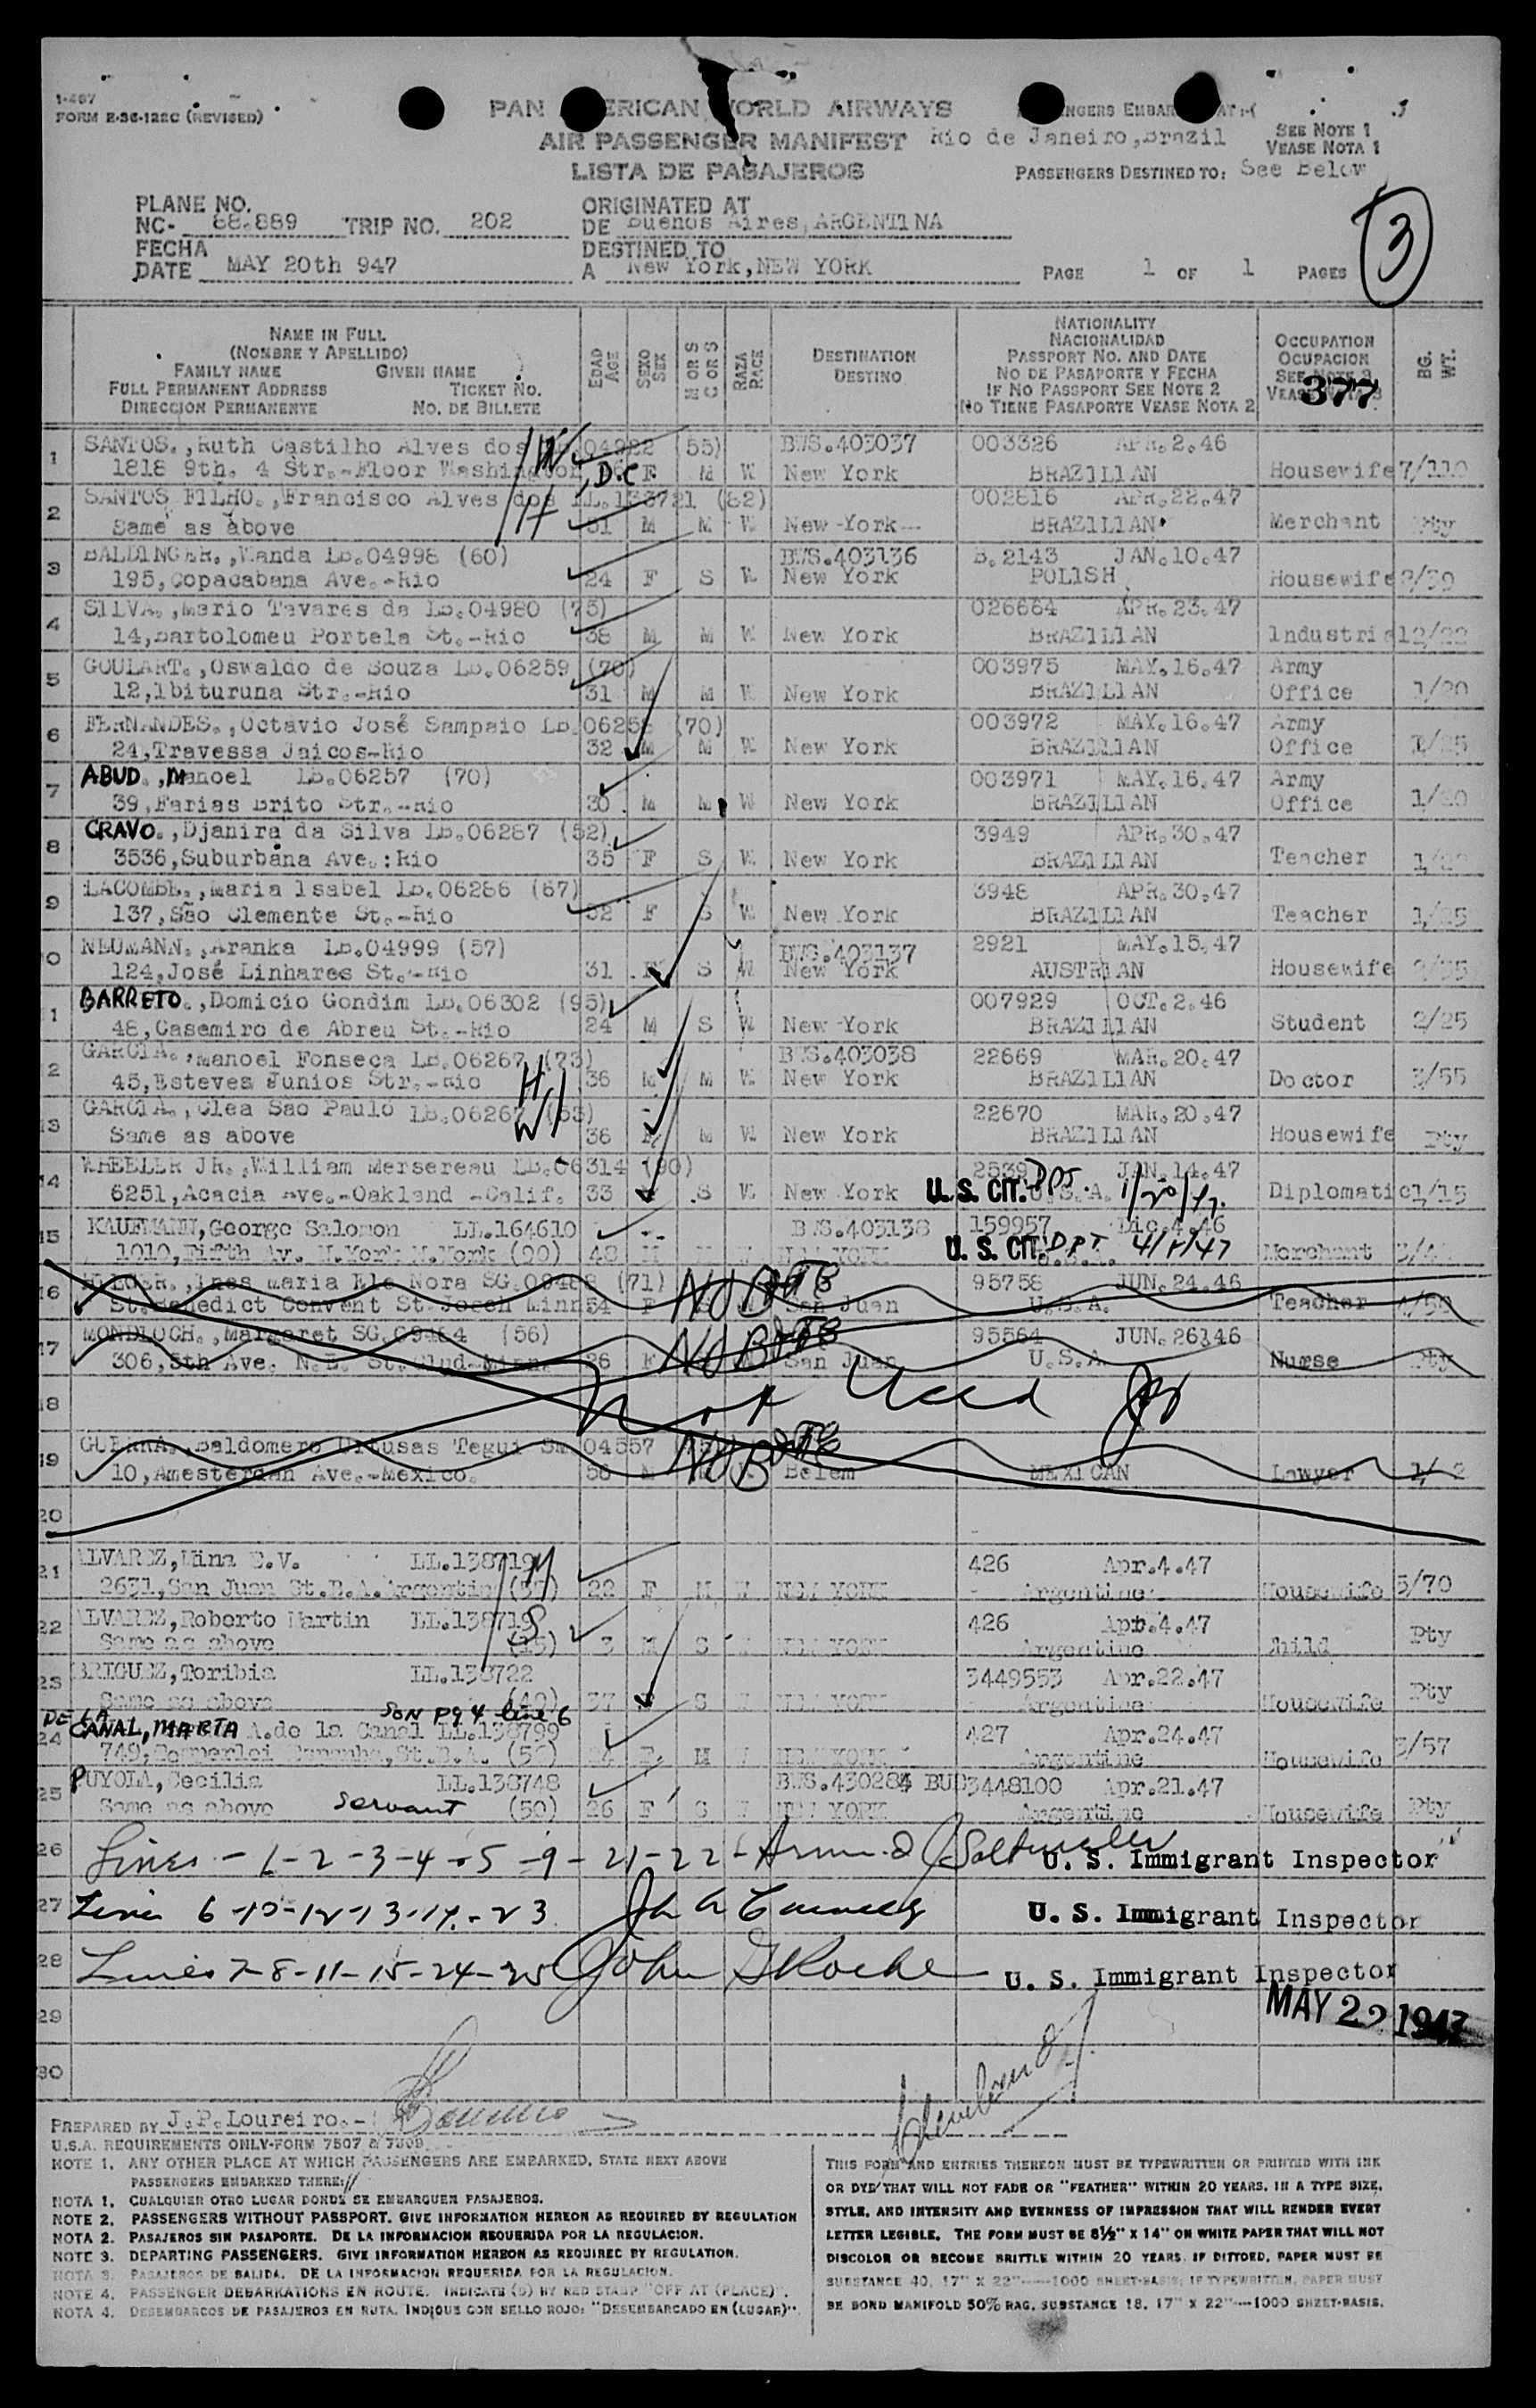 1-467
FORM E-36-122C (REVISED)
PAN AMERICAN WORLD AIRWAYS
AIR PASSENGER MANIFEST
LISTA DE PASAJEROS
PASSENGERS EMBARKED AT:-(
Rio de Janeiro,Brazil
SEE NOTE 1
VEASE NOTA 1
PASSENGERS DESTINED TO: See Below
3
PLANE NO.
NC- 88.889 TRIP NO. 202
ORIGINATED AT
DE Buenos Aires,ARGENTINA
FECHA
DATE MAY 20th 947
DESTINED TO
A New York,NEW YORK
PAGE 1 OF 1 PAGES
NAME IN FULL
(NOMBRE Y APELLIDO)
FAMILY NAME GIVEN NAME
FULL PERMANENT ADDRESS TICKET NO.
DIRECCION PERMANENTE NO. DE BILLETE
EDAD AGE
SEXO SEX
M OR S C OR S
RAZA RACE
DESTINATION
DESTINO
NATIONALITY
NACIONALIDAD
PASSPORT NO. AND DATE
NO DE PASAPORTE Y FECHA
IF NO PASSPORT SEE NOTE 2
NO TIENE PASAPORTE VEASE NOTA 2
OCCUPATION
OCUPACION
SEE NOTE 3
VEASE NOTA 3
377
BG. WT.
1 SANTOS.,Ruth Castilho Alves dos 04922 (55) BWS.403037 003326 APR.2.46
1818 9th. 4 Str.-Floor Washington, D.C F. M W New York BRAZILIAN Housewife 7/110
2 SANTOS FILHO.,Francisco Alves dos LL.133721 (82) 002816 APR.22.47
Same as above 51 M M W New York BRAZILIAN Merchant Pty
3 BALDINGER.,Wanda Lb.04998 (60) BWS.403136 B.2143 JAN.10.47
195,Copacabana Ave.-Rio 24 F S W New York POLISH Housewife 2/39
4 SILVA.,Mario Tavares da Lb.04980 (75) 026664 APR.23.47
14,Bartolomeu Portela St.-Rio 38 M M W New York BRAZILIAN Industria 12/22
5 GOULART.,Oswaldo de Souza Lb.06259 (70) 003975 MAY.16.47 Army
12,Ibituruna Str.-Rio 31 M M W New York BRAZILIAN Office 1/20
6 FERNANDES.,Octavio José Sampaio Lb.0625 (70) 003972 MAY.16.47 Army
24,Travessa Jaicos-Rio 32 M M W New York BRAZILIAN Office 1/25
7 ABUD.,Manoel Lb.06257 (70) 003971 MAY.16.47 Army
39,Farias Brito Str.-Rio 30 M M W New York BRAZILIAN Office 1/20
8 CRAVO.,Djanira da Silva Lb.06287 (52) 3949 APR.30.47
3536,Suburbana Ave.:Rio 35 F S W New York BRAZILIAN Teacher
9 LACOMBE.,Maria Isabel Lb.06286 (67) 3948 APR.30.47
137,São Clemente St.-Rio F S W New York BRAZILIAN Teacher 1/25
0 NEUMANN.,Aranka Lb.04999 (57) BWS.403137 2921 MAY.15.47
124,José Linhares St.-Rio 31 F S W New York AUSTRIAN Housewife
1 BARRETO.,Domicio Gondim Lb.06302 (95) 007929 OCT.2.46
48,Casemiro de Abreu St.-Rio 24 M S W New York BRAZILIAN Student 2/25
2 GARCIA.,Manoel Fonseca Lb.06267 (73) BWS.403038 22669 MAR.20.47
45,Esteves Junios Str.-Rio H 36 M M W New York BRAZILIAN Doctor 3/55
13 GARCIA.,Clea Sao Paulo Lb.06267 (53) 22670 MAR.20.47
Same as above W 36 F M W New York BRAZILIAN Housewife Pty
14 WHEELER JR.,William Mersereau Lb.06314 (90) 2539 DPT. JAN.14.47
6251,Acacia Ave.-Oakland -Calif. 33 S W New York U. S. CIT. U.S.A. 1/20/47. Diplomatic 1/15
15 KAUFMANN,George Salomon LL.164610 BWS.403138 159957 Dic.4.46
1010,Fifth Av. N.York N.York (90) 48 M NEW YORK U. S. CIT. DPT. 4/1/47 Merchant
16 Ines Maria Ele Nora SG.09488 (71) NO BOTE 95758 JUN.24.46
St.Benedict Convent St Josch Minn 54 F San Juan U.S.A. Teacher
17 MONDLOCH.,Margaret SG.09484 (56) NO BOTE 95564 JUN.26.46
306,5th Ave. N.E. St.Clud-Minn. 26 F San Juan U.S.A Nurse Pty
18 Not Used
19 GUERRA.,Baldomero Urtusas Tegui Sm.04557 NO BOTE
10,Amesterdan Ave.-Mexico. 56 M Belem MEXICAN Lawyer
20
21 ALVAREZ,Dina E.V. LL.138719 M 426 Apr.4.47
2631,San Juan St.B.A.Argentin 22 F M W NEW YORK Argentine Housewife 5/70
22 ALVAREZ,Roberto Martin LL.138719 S 426 Apr.4.47
Same as above (15) 3 M S W NEW YORK Argentine Child Pty
23 BRIGUEZ,Toribia LL.138722 3449553 Apr.22.47
Same as above (49) 37 F S W NEW YORK Argentine Housewife Pty
SON Pg 4 line 6
24 DE LA CANAL, MARTA A.de la Canal LL.138799 427 Apr.24.47
F. M W NEW YORK Argentine Housewife 3/57
25 PUYOLA,Cecilia LL.138748 BUS.430284 BUE 3448100 Apr.21.47
Same as above Servant (50) 26 F S W NEW YORK Argentine Housewife Pty
26 Lines - 1-2-3-4-5-9-21-22- U. S. Immigrant Inspector
27 Lines 6-10-12-13-14.-23. U. S. Immigrant Inspector
28 Lines 7-8-11-15-24-25 John G Roche U. S. Immigrant Inspector
29 MAY 22 1947
30
PREPARED BY J.P.Loureiro.-
U.S.A. REQUIREMENTS ONLY-FORM 7507 & 7509
NOTE 1. ANY OTHER PLACE AT WHICH PASSENGERS ARE EMBARKED, STATE NEXT ABOVE
PASSENGERS EMBARKED THERE:
NOTA 1. CUALQUIER OTRO LUGAR DONDE SE EMBARQUEN PASAJEROS.
NOTE 2. PASSENGERS WITHOUT PASSPORT. GIVE INFORMATION HEREON AS REQUIRED BY REGULATION
NOTA 2. PASAJEROS SIN PASAPORTE. DE LA INFORMACION REQUERIDA POR LA REGULACION.
NOTE 3. DEPARTING PASSENGERS. GIVE INFORMATION HEREON AS REQUIRED BY REGULATION.
NOTA 3. PASAJEROS DE SALIDA. DE LA INFORMACION REQUERIDA POR LA REGULACION.
NOTE 4. PASSENGER DEBARKATIONS EN ROUTE. INDICATE (D) BY RED STAMP "OFF AT (PLACE)".
NOTA 4. DESEMBARCOS DE PASAJEROS EN RUTA. INDIQUE CON SELLO ROJO: "DESEMBARCADO EN (LUGAR)".
THIS FORM AND ENTRIES THEREON MUST BE TYPEWRITTEN OR PRINTED WITH INK
OR DYE THAT WILL NOT FADE OR "FEATHER" WITHIN 20 YEARS. IN A TYPE SIZE,
STYLE, AND INTENSITY AND EVENNESS OF IMPRESSION THAT WILL RENDER EVERT
LETTER LEGIBLE. THE FORM MUST BE 8½" X 14" ON WHITE PAPER THAT WILL NOT
DISCOLOR OR BECOME BRITTLE WITHIN 20 YEARS. IF DITTOED, PAPER MUST BE
SUBSTANCE 40, 17" X 22"----1000 SHEET-BASIS; IF TYPEWRITTEN, PAPER MUST
BE BOND MANIFOLD 50% RAG, SUBSTANCE 18, 17" X 22"---1000 SHEET-BASIS.